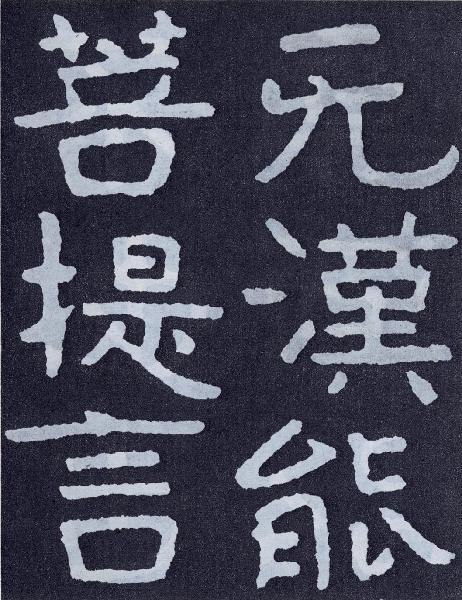 元漢能
菩提言